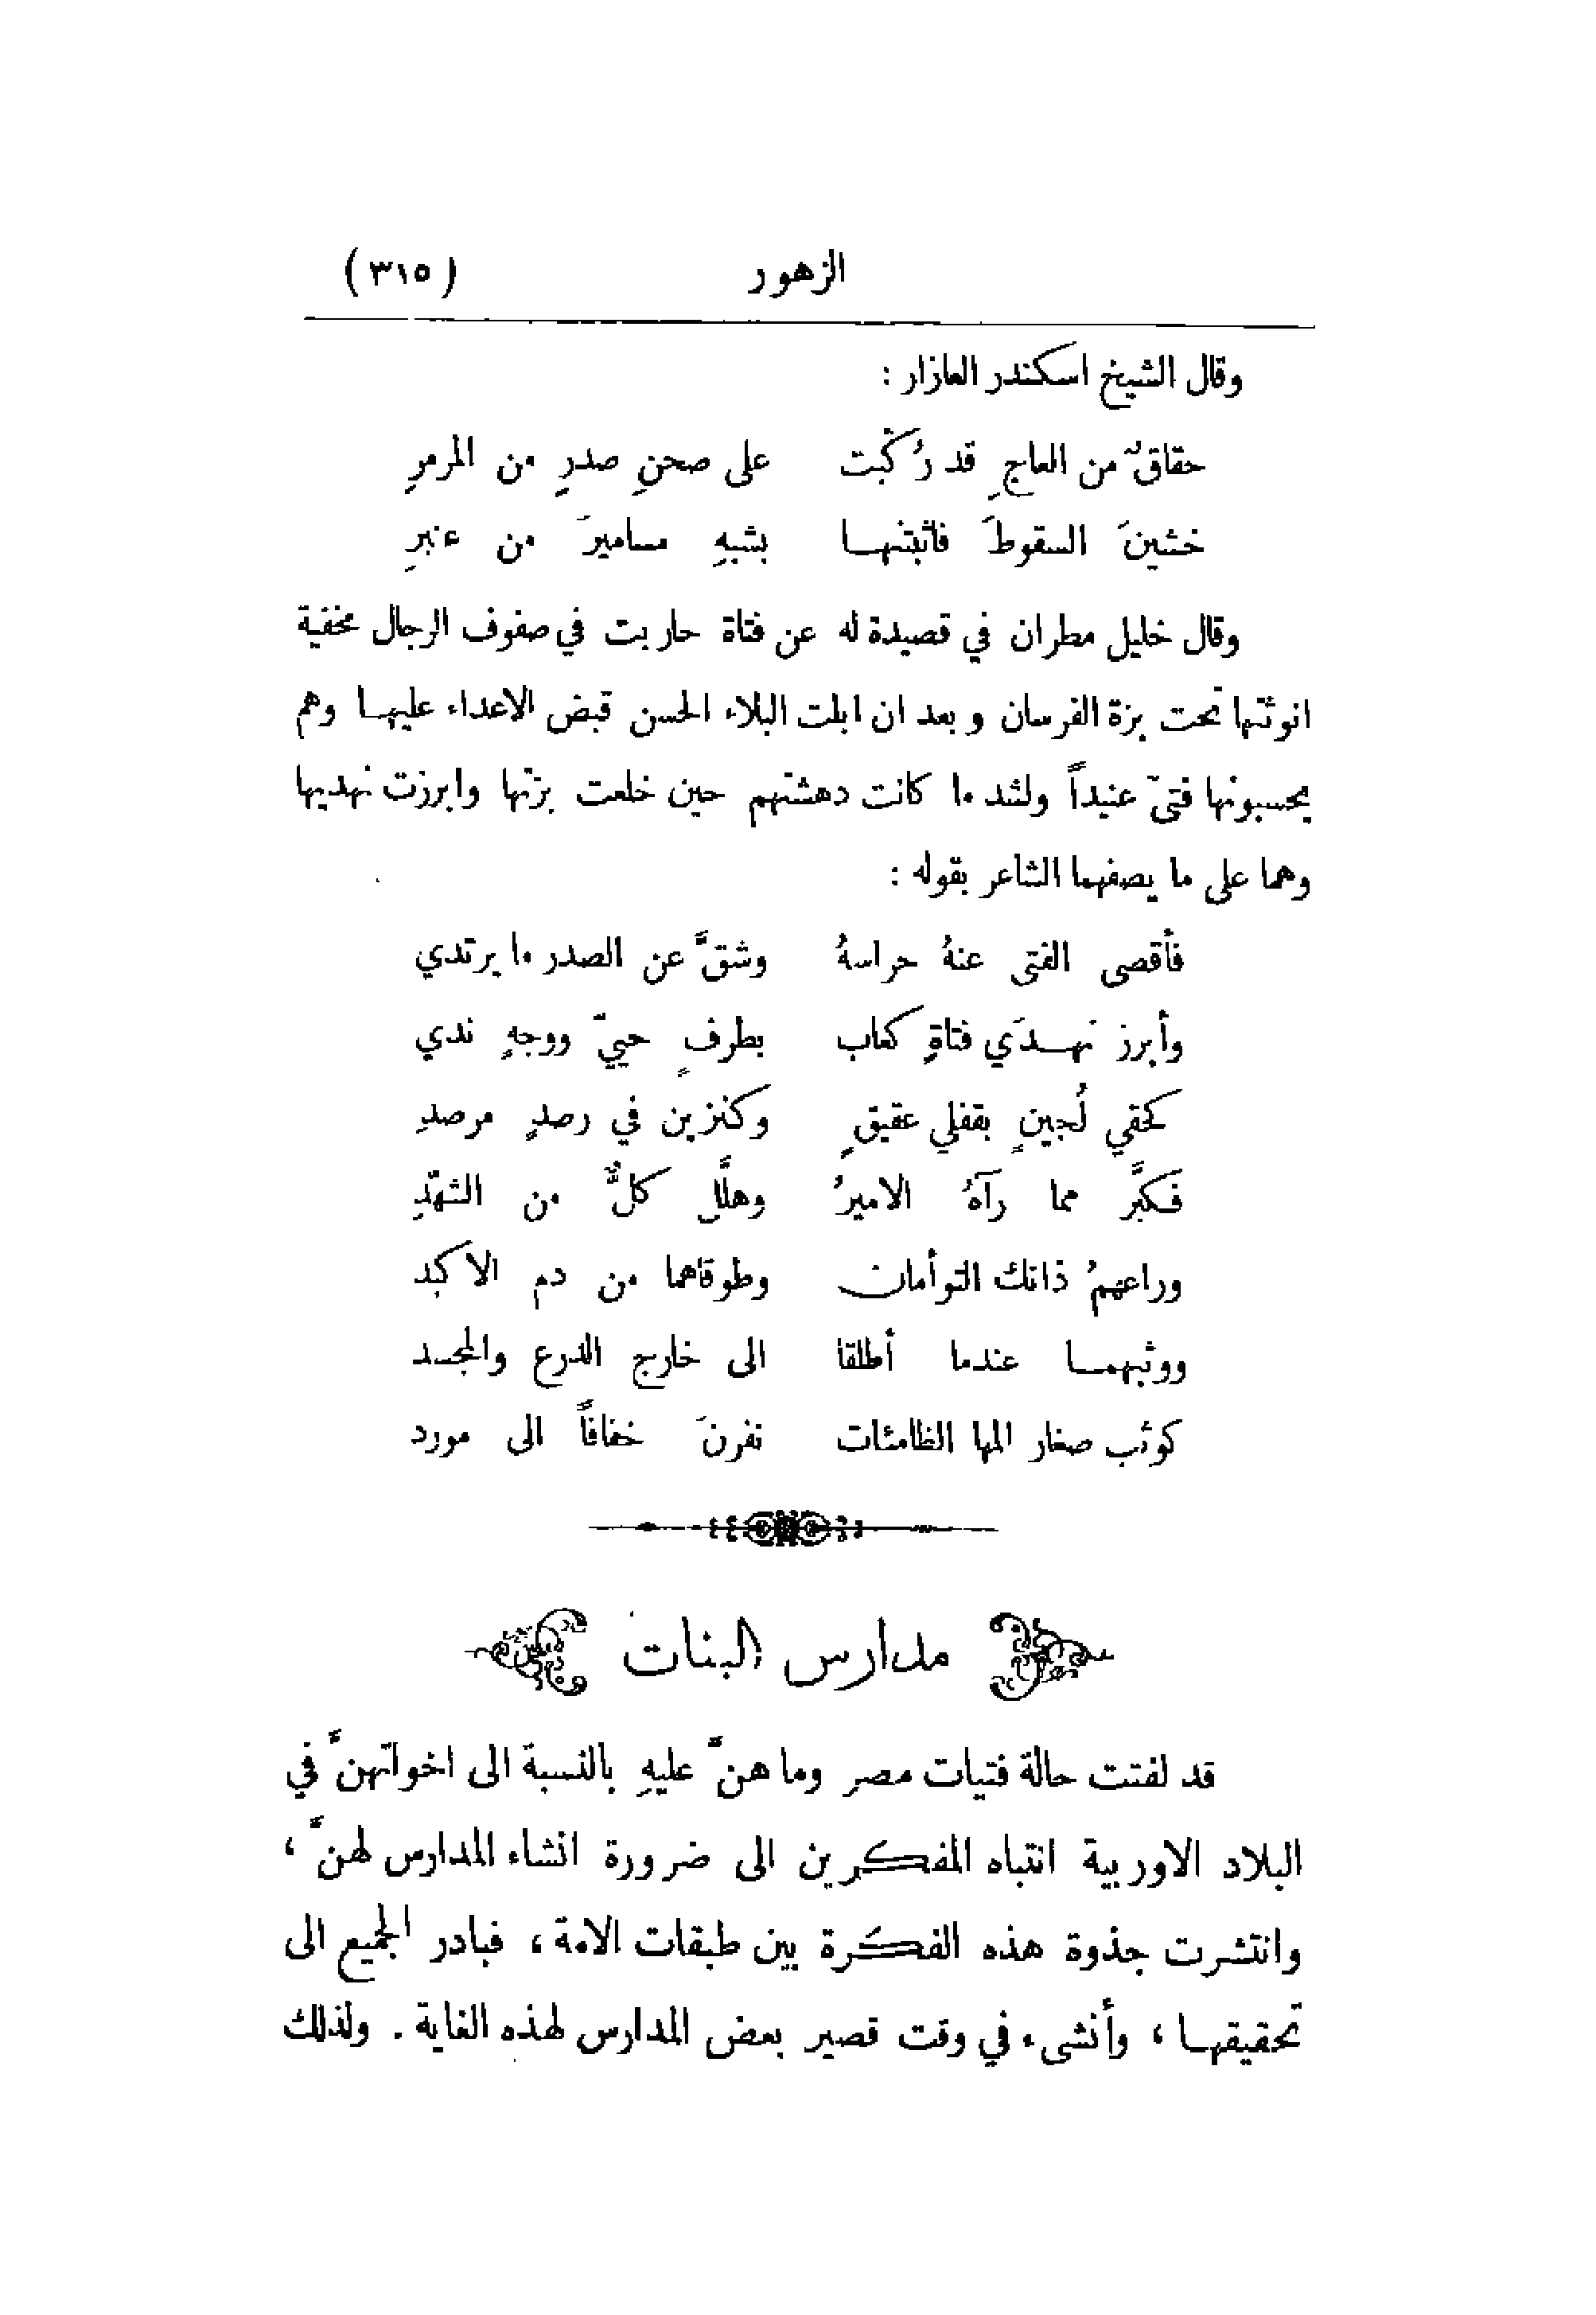 الزهور (٣١٥)
وقال الشيخ اسكندر العازار :
حقاقٌ من العاجِ قد رُكّبت على صحنِ صدرٍ من المرمرِ
خشينَ السقوطَ فأثبتنهـا بشبهِ مساميرَ من عنبرِ
وقال خليل مطران في قصيدة له عن فتاة حاربت في صفوف الرجال مخفية
انوثتها تحت بزة الفرسان وبعد ان ابلت البلاء الحسن قبض الاعداء عليهـا وهم
يحسبونها فتىً عنيداً ولشد ما كانت دهشتهم حين خلعت بزتها وابرزت نهديها
وهما على ما يصفهما الشاعر بقوله :
فأقصى الفتى عنهُ حراسهُ وشقَّ عن الصدر ما يرتدي
وأبرز نهـدَي فتاةٍ كعاب بطرفٍ حييّ ووجهٍ ندي
كحقي لُجينٍ بقفلي عقيقٍ وكنزين في رصدٍ مرصدِ
فكبَّر مما رآهُ الاميرُ وهلَّل كلٌّ من الشهّدِ
وراعهمُ ذانك التوأمان وطوقاهما من دم الاكبد
ووثبهمـا عندما أطلقا الى خارج الدرع والمجسد
كوثب صغار المها الظامئات نفرنَ خفافاً الى مورد
مدارس البنات
قد لفتت حالة فتيات مصر وما هنَّ عليهِ بالنسبة الى اخواتهنَّ في
البلاد الاوربية انتباه المفكرين الى ضرورة انشاء المدارس لهنَّ ،
وانتشرت جذوة هذه الفكرة بين طبقات الامة ، فبادر الجميع الى
تحقيقهـا ، وأنشىء في وقت قصير بعض المدارس لهذه الغاية . ولذلك